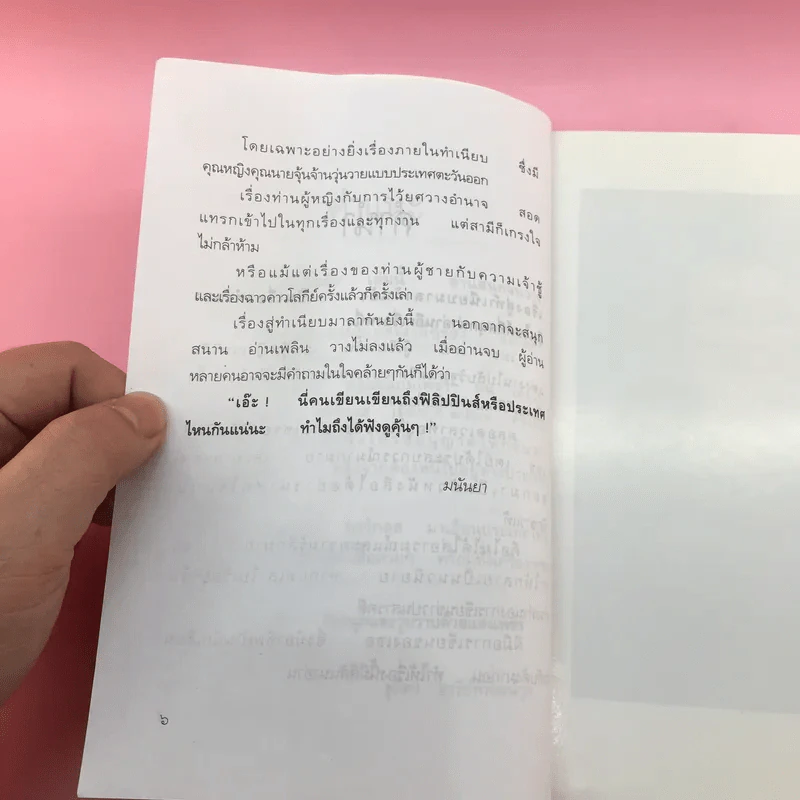 โดยเฉพาะอย่างยิ่งเรื่องภายในทำเนียบ ซึ่งมี
คุณหญิงคุณนายจุ้นจ้านวุ่นวายแบบประเทศตะวันออก
เรื่องท่านผู้หญิงกับการไว้ยศวางอำนาจ สอด
แทรกเข้าไปในทุกเรื่องและทุกงาน แต่สามีก็เกรงใจ
ไม่กล้าห้าม
หรือแม้แต่เรื่องของท่านผู้ชายกับความเจ้าชู้
และเรื่องฉาวคาวโลกีย์ครั้งแล้วก็ครั้งเล่า
เรื่องสู่ทำเนียบมาลากันยังนี้ นอกจากจะสนุก
สนาน อ่านเพลิน วางไม่ลงแล้ว เมื่ออ่านจบ ผู้อ่าน
หลายคนอาจจะมีคำถามในใจคล้ายๆกันก็ได้ว่า
“เอ๊ะ ! นี่คนเขียนเขียนถึงฟิลิปปินส์หรือประเทศ
ไหนกันแน่นะ ทำไมถึงได้ฟังดูคุ้นๆ !”
มนันยา
๖